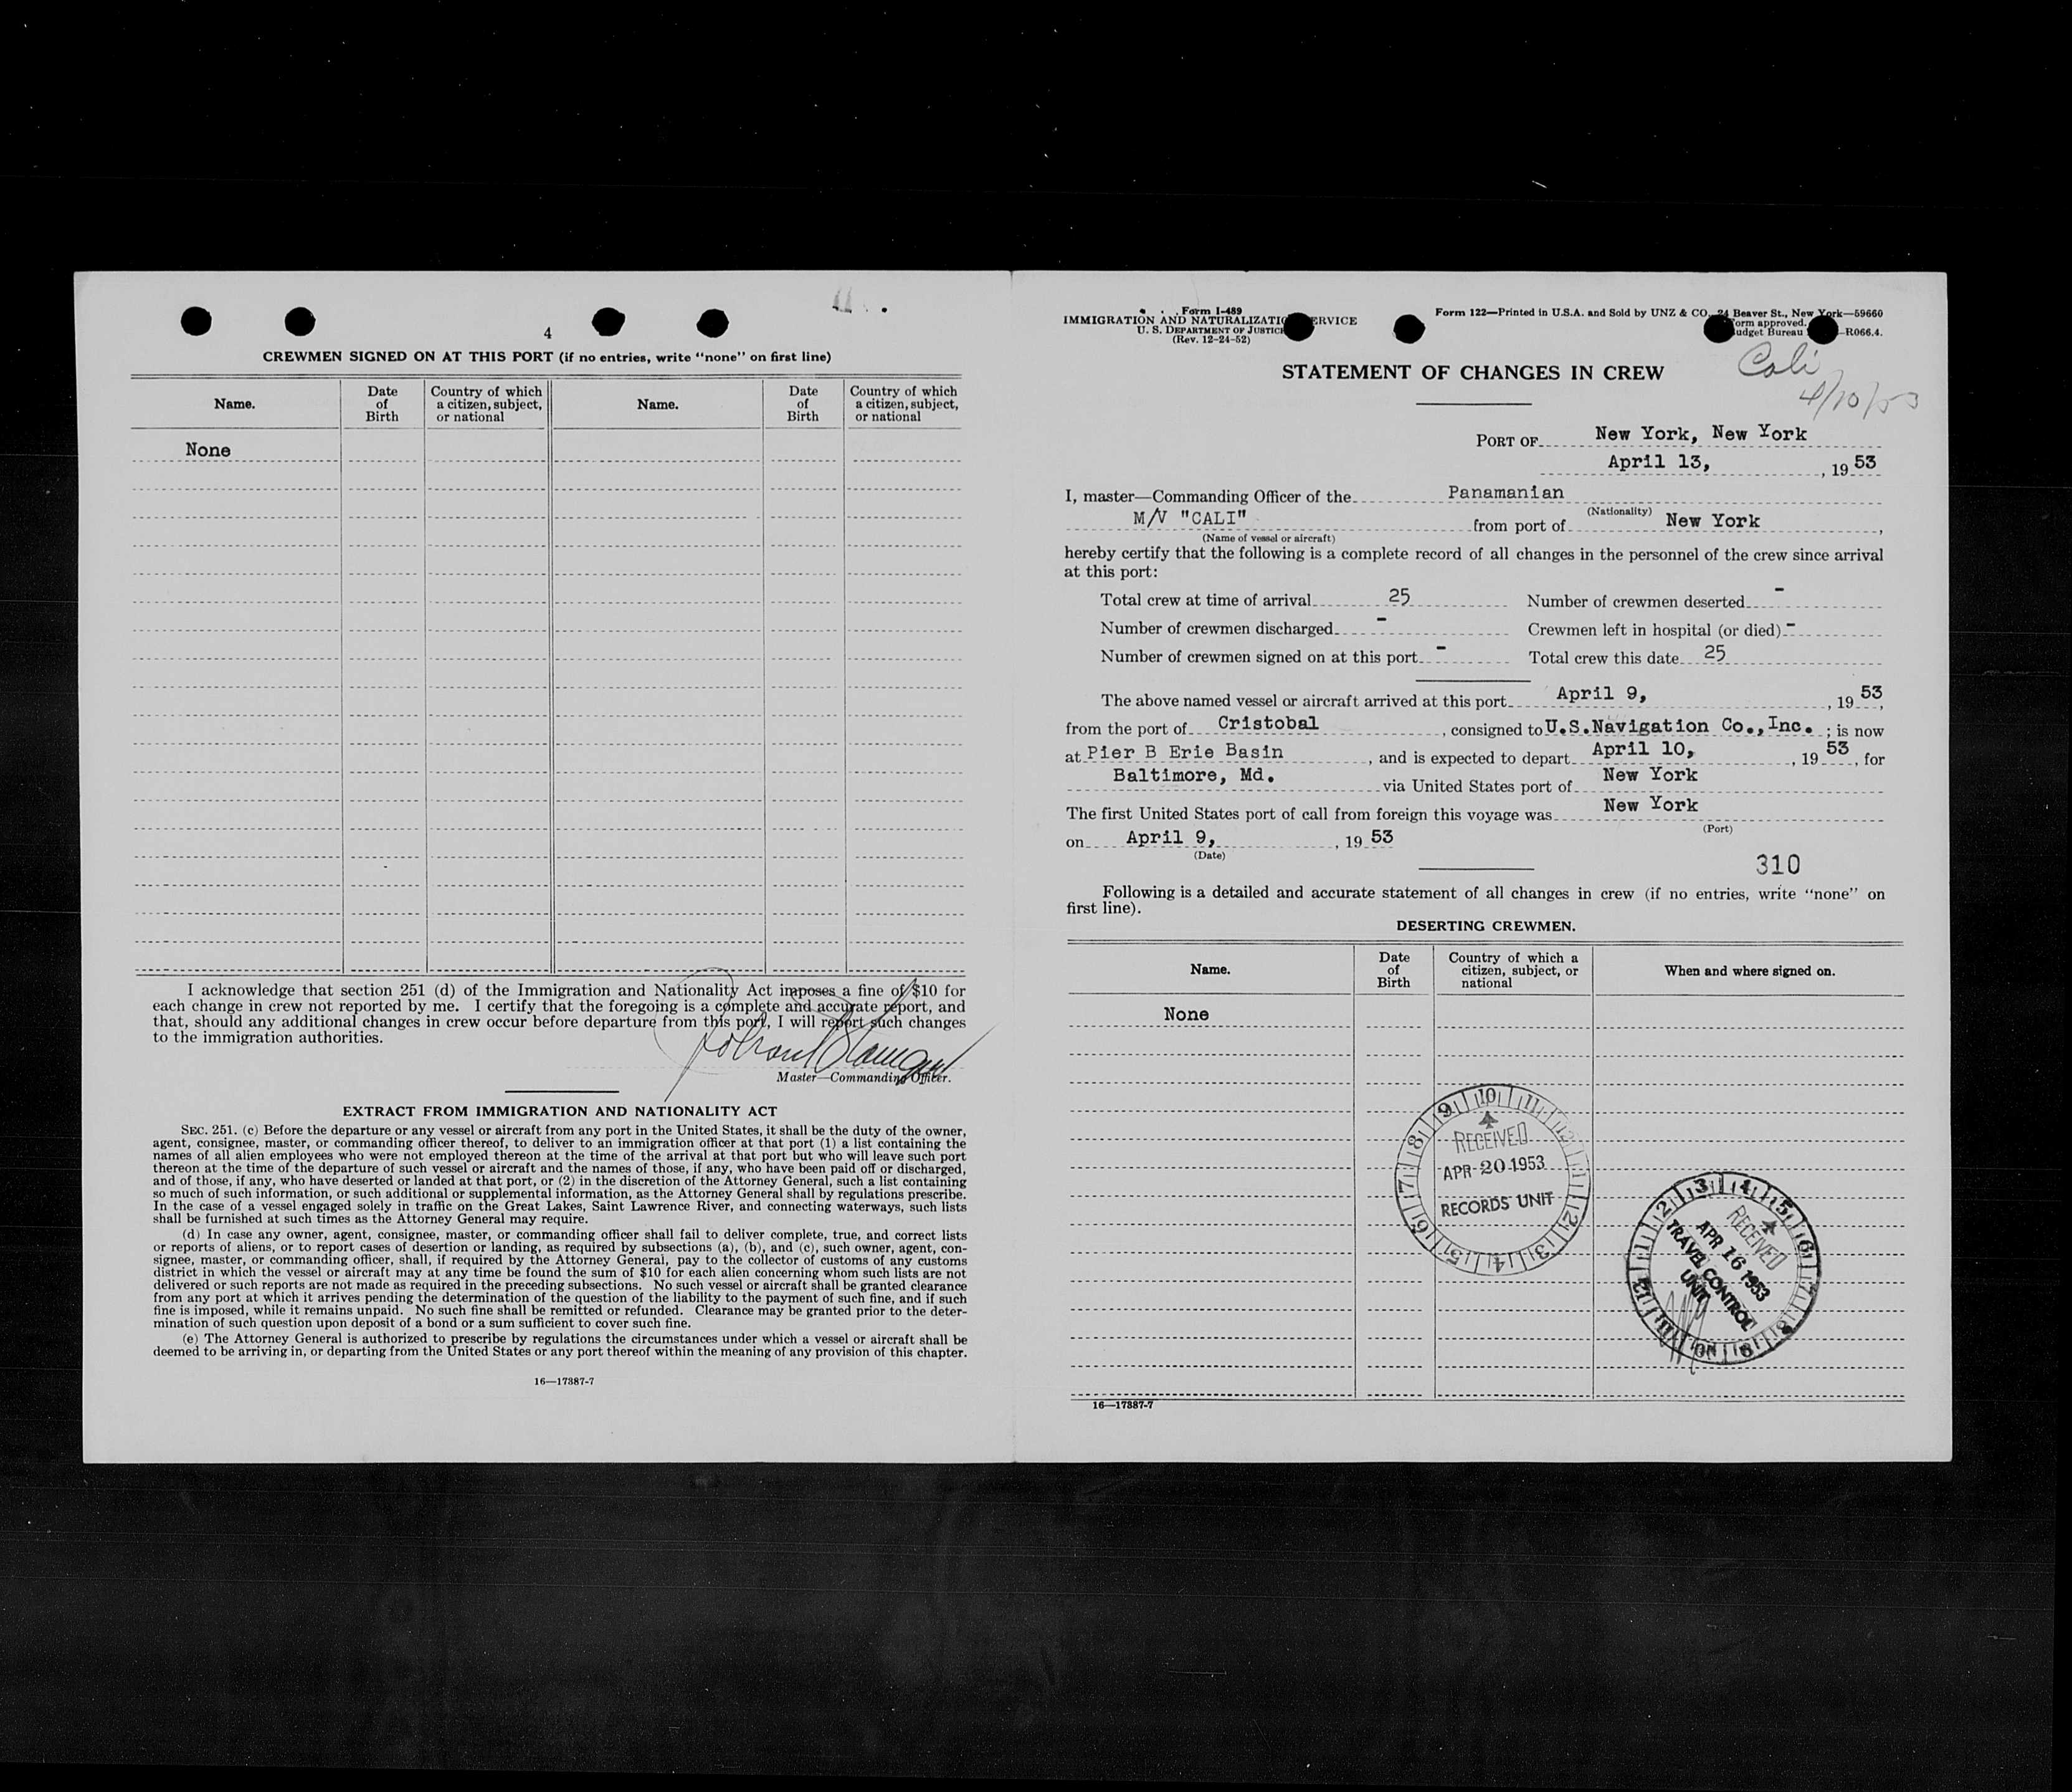 4
CREWMEN SIGNED ON AT THIS PORT (if no entries, write "none" on first line)
Name. Date of Birth Country of which a citizen, subject, or national Name. Date of Birth Country of which a citizen, subject, or national
None
I acknowledge that section 251 (d) of the Immigration and Nationality Act imposes a fine of $10 for
each change in crew not reported by me. I certify that the foregoing is a complete and accurate report, and
that, should any additional changes in crew occur before departure from this port, I will report such changes
to the immigration authorities.
Master—Commanding Officer.
EXTRACT FROM IMMIGRATION AND NATIONALITY ACT
SEC. 251. (c) Before the departure or any vessel or aircraft from any port in the United States, it shall be the duty of the owner,
agent, consignee, master, or commanding officer thereof, to deliver to an immigration officer at that port (1) a list containing the
names of all alien employees who were not employed thereon at the time of the arrival at that port but who will leave such port
thereon at the time of the departure of such vessel or aircraft and the names of those, if any, who have been paid off or discharged,
and of those, if any, who have deserted or landed at that port, or (2) in the discretion of the Attorney General, such a list containing
so much of such information, or such additional or supplemental information, as the Attorney General shall by regulations prescribe.
In the case of a vessel engaged solely in traffic on the Great Lakes, Saint Lawrence River, and connecting waterways, such lists
shall be furnished at such times as the Attorney General may require.
(d) In case any owner, agent, consignee, master, or commanding officer shall fail to deliver complete, true, and correct lists
or reports of aliens, or to report cases of desertion or landing, as required by subsections (a), (b), and (c), such owner, agent, con-
signee, master, or commanding officer, shall, if required by the Attorney General, pay to the collector of customs of any customs
district in which the vessel or aircraft may at any time be found the sum of $10 for each alien concerning whom such lists are not
delivered or such reports are not made as required in the preceding subsections. No such vessel or aircraft shall be granted clearance
from any port at which it arrives pending the determination of the question of the liability to the payment of such fine, and if such
fine is imposed, while it remains unpaid. No such fine shall be remitted or refunded. Clearance may be granted prior to the deter-
mination of such question upon deposit of a bond or a sum sufficient to cover such fine.
(e) The Attorney General is authorized to prescribe by regulations the circumstances under which a vessel or aircraft shall be
deemed to be arriving in, or departing from the United States or any port thereof within the meaning of any provision of this chapter.
16—17387-7
Form I-489
IMMIGRATION AND NATURALIZATIO ERVICE
U. S. DEPARTMENT OF JUSTIC
(Rev. 12-24-52)
Form 122—Printed in U.S.A. and Sold by UNZ & CO., 24 Beaver St., New York—59660
orm approved.
udget Bureau —R066.4.
Cali
4/10/53
STATEMENT OF CHANGES IN CREW
PORT OF New York, New York
April 13, , 19 53
I, master—Commanding Officer of the Panamanian
(Nationality)
M/V "CALI" from port of New York ,
(Name of vessel or aircraft)
hereby certify that the following is a complete record of all changes in the personnel of the crew since arrival
at this port:
Total crew at time of arrival 25 Number of crewmen deserted -
Number of crewmen discharged - Crewmen left in hospital (or died) -
Number of crewmen signed on at this port - Total crew this date 25
The above named vessel or aircraft arrived at this port April 9, , 19 53,
from the port of Cristobal , consigned to U.S.Navigation Co.,Inc. ; is now
at Pier B Erie Basin , and is expected to depart April 10, , 19 53, for
Baltimore, Md. via United States port of New York
The first United States port of call from foreign this voyage was New York
(Port)
on April 9, , 19 53
(Date)
310
Following is a detailed and accurate statement of all changes in crew (if no entries, write "none" on
first line).
DESERTING CREWMEN.
Name. Date of Birth Country of which a citizen, subject, or national When and where signed on.
None
9 10 11 12 1 2 3 4 5 6 7 8
RECEIVED
APR 20 1953
RECORDS UNIT
1 2 3 4 5 6 7 8 9 10 11 12
RECEIVED
APR 16 1953
TRAVEL CONTROL
UNIT
16—17387-7